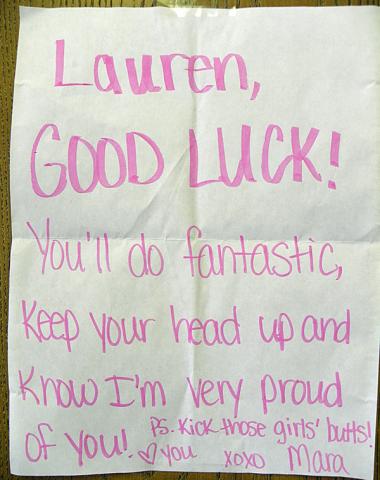 Lauren,
GOOD LUCK!
You'll do fantastic,
Keep your head up and
Know I'm very proud
of you! PS. Kick those girls' butts!
♡ you xoxo Mara